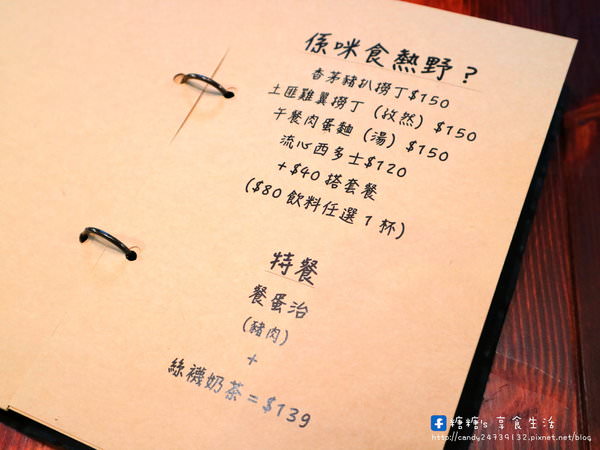 係咪食熱野？
香茅豬扒撈丁$150
土匪雞翼撈丁（孜然）$150
午餐肉蛋麵（湯）$150
流心西多士$120
+$40搭套餐
($80飲料任選1杯)
特餐
餐蛋治
(豬肉)
+
絲襪奶茶=$139
糖糖's 享食生活
http://candy24739132.pixnet.net/blog